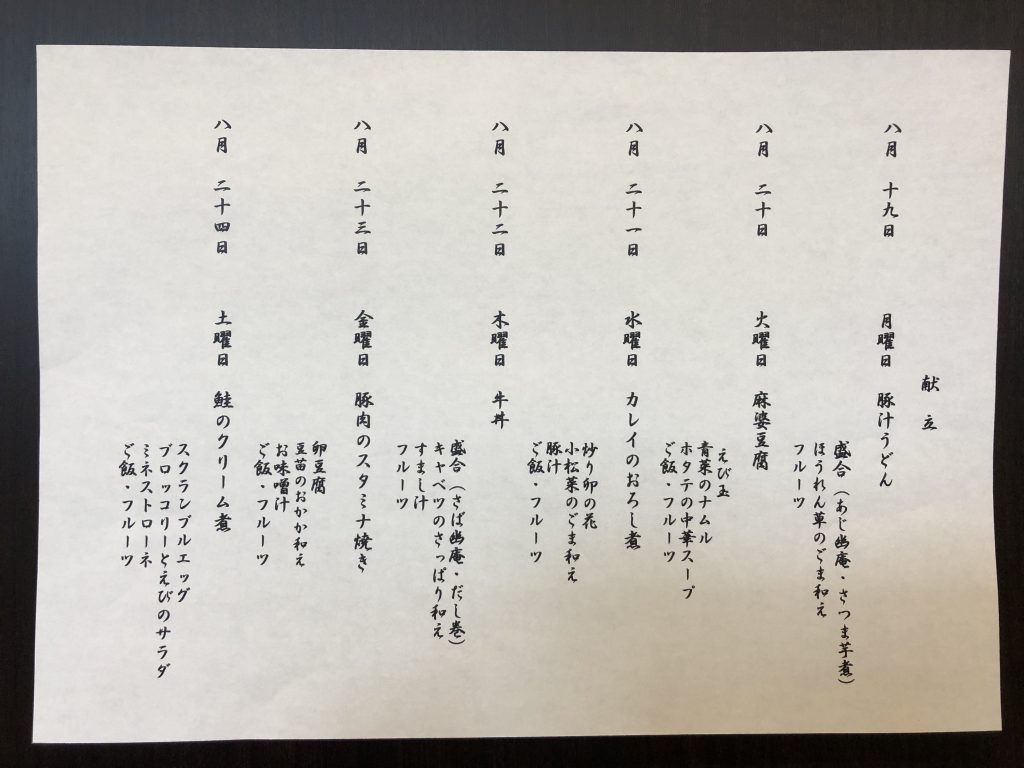 献立
八月 十九日 月曜日 豚汁うどん
盛合(あじ幽庵・さつま芋煮)
ほうれん草のごま和え
フルーツ
八月 二十日 火曜日 麻婆豆腐
えび玉
青菜のナムル
ホタテの中華スープ
ご飯・フルーツ
八月 二十一日 水曜日 カレイのおろし煮
炒り卯の花
小松菜のごま和え
豚汁
ご飯・フルーツ
八月 二十二日 木曜日 牛丼
盛合(さば幽庵・だし巻)
キャベツのさっぱり和え
すまし汁
フルーツ
八月 二十三日 金曜日 豚肉のスタミナ焼き
卵豆腐
豆苗のおかか和え
お味噌汁
ご飯・フルーツ
八月 二十四日 土曜日 鮭のクリーム煮
スクランブルエッグ
ブロッコリーとえびのサラダ
ミネストローネ
ご飯・フルーツ